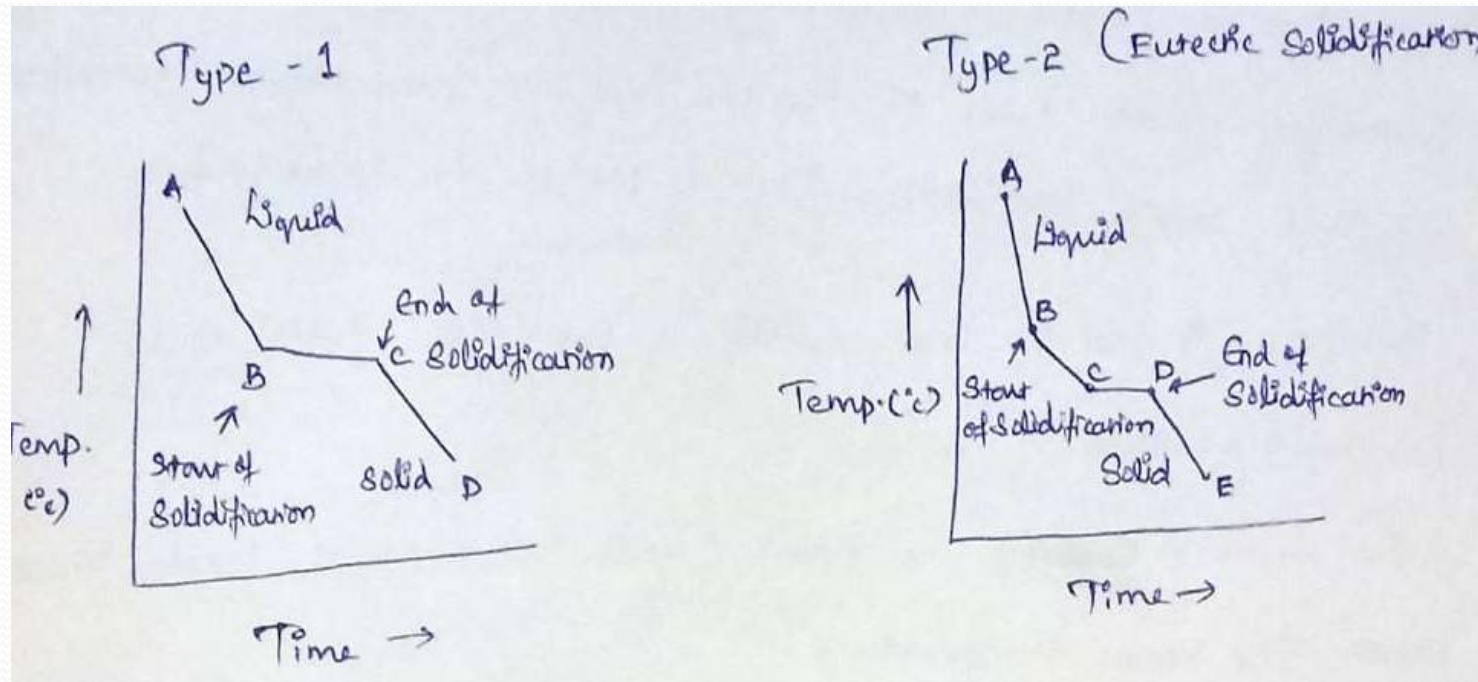 Type - 1
A
Liquid
B
End of
C Solidification
Start of
Solidification
Solid D
Temp.
(°c)
Time →
Type-2 (Eutectic Solidification
A
Liquid
B
Start
of Solidification
C
D
End of
Solidification
Solid
E
Temp.(°c)
Time →